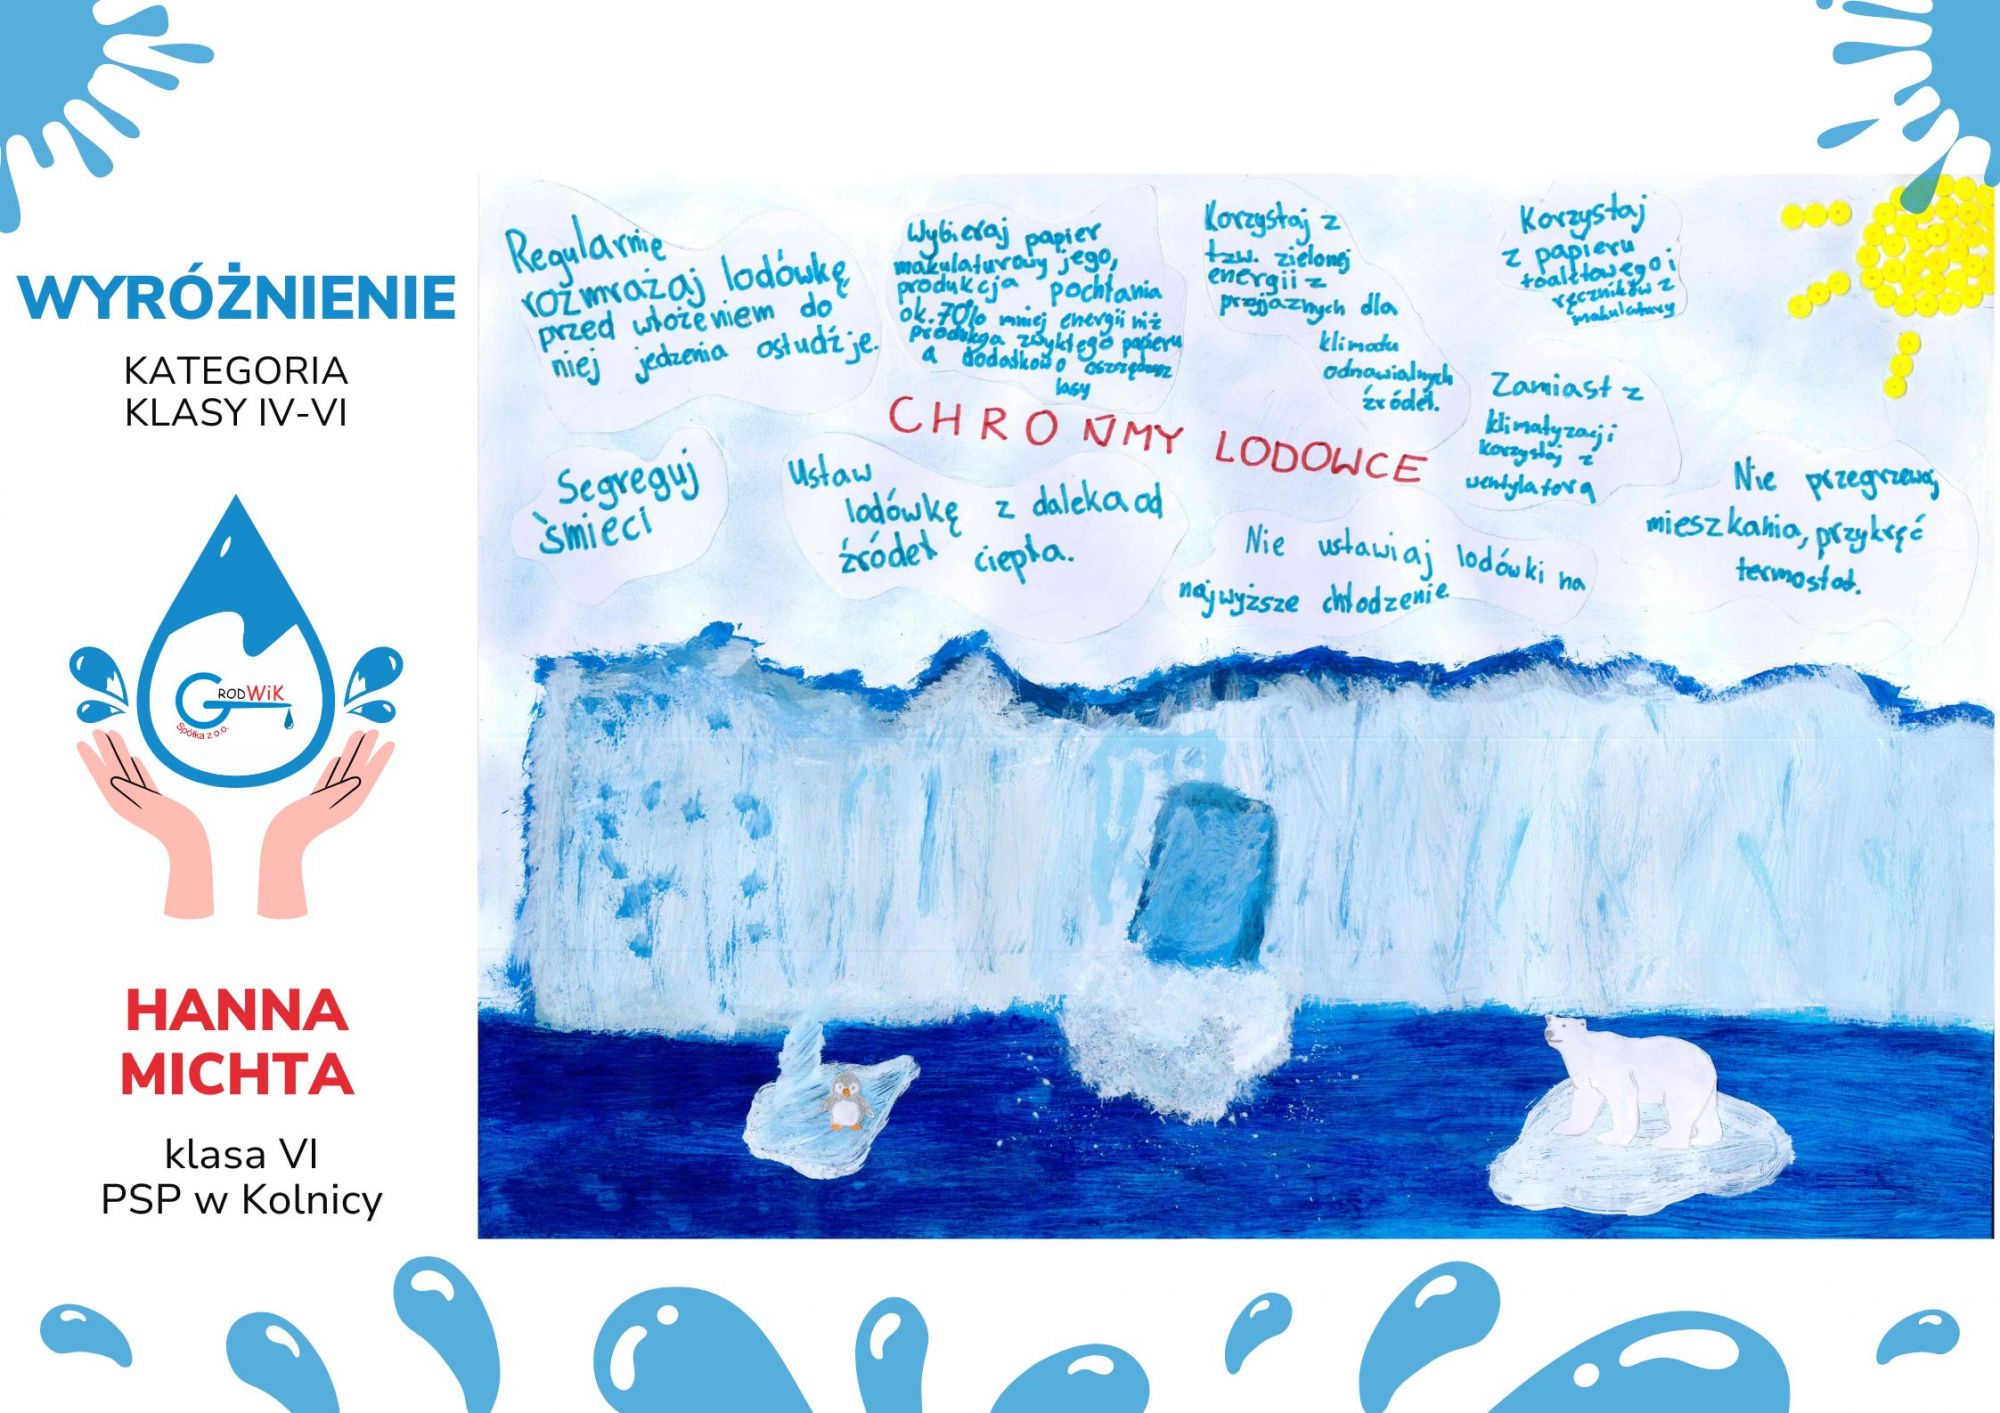 WYRÓŻNIENIE
KATEGORIA
KLASY IV-VI
GRODWiK
Spółka z o.o.
HANNA
MICHTA
klasa VI
PSP w Kolnicy
Regularnie
rozmrażaj lodówkę
przed włożeniem do
niej jedzenia ostudź je.
Wybieraj papier
makulaturowy jego,
produkcja pochłania
ok. 70% mniej energii niż
produkcja zwykłego papieru
a dodatkowo oszczędzasz
lasy
Korzystaj z
tzw. zielonej
energii z
przyjaznych dla
klimatu
odnawialnych
źródeł.
Korzystaj
z papieru
toaletowego i
ręczników z
makulatury
CHROŃMY LODOWCE
Zamiast z
klimatyzacji
korzystaj z
wentylatora
Segreguj
śmieci
Ustaw
lodówkę z daleka od
źródeł ciepła.
Nie ustawiaj lodówki na
najwyższe chłodzenie.
Nie przegrzewaj
mieszkania, przykręć
termostat.